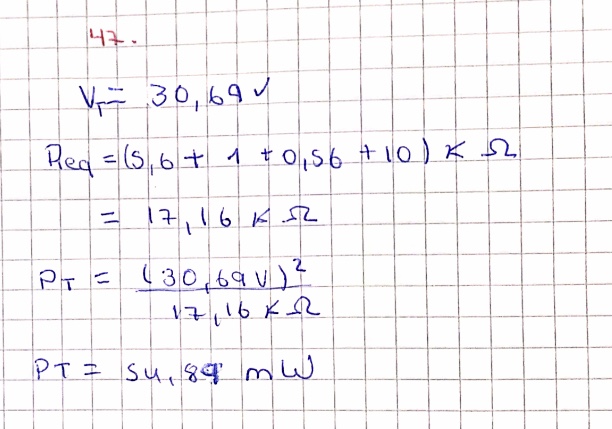 47.
V_T = 30,69 V
Req = (5,6 + 1 + 0,56 + 10) K Ω
= 17,16 K Ω
P_T = (30,69 V)²
17,16 K Ω
PT = 54,89 mW